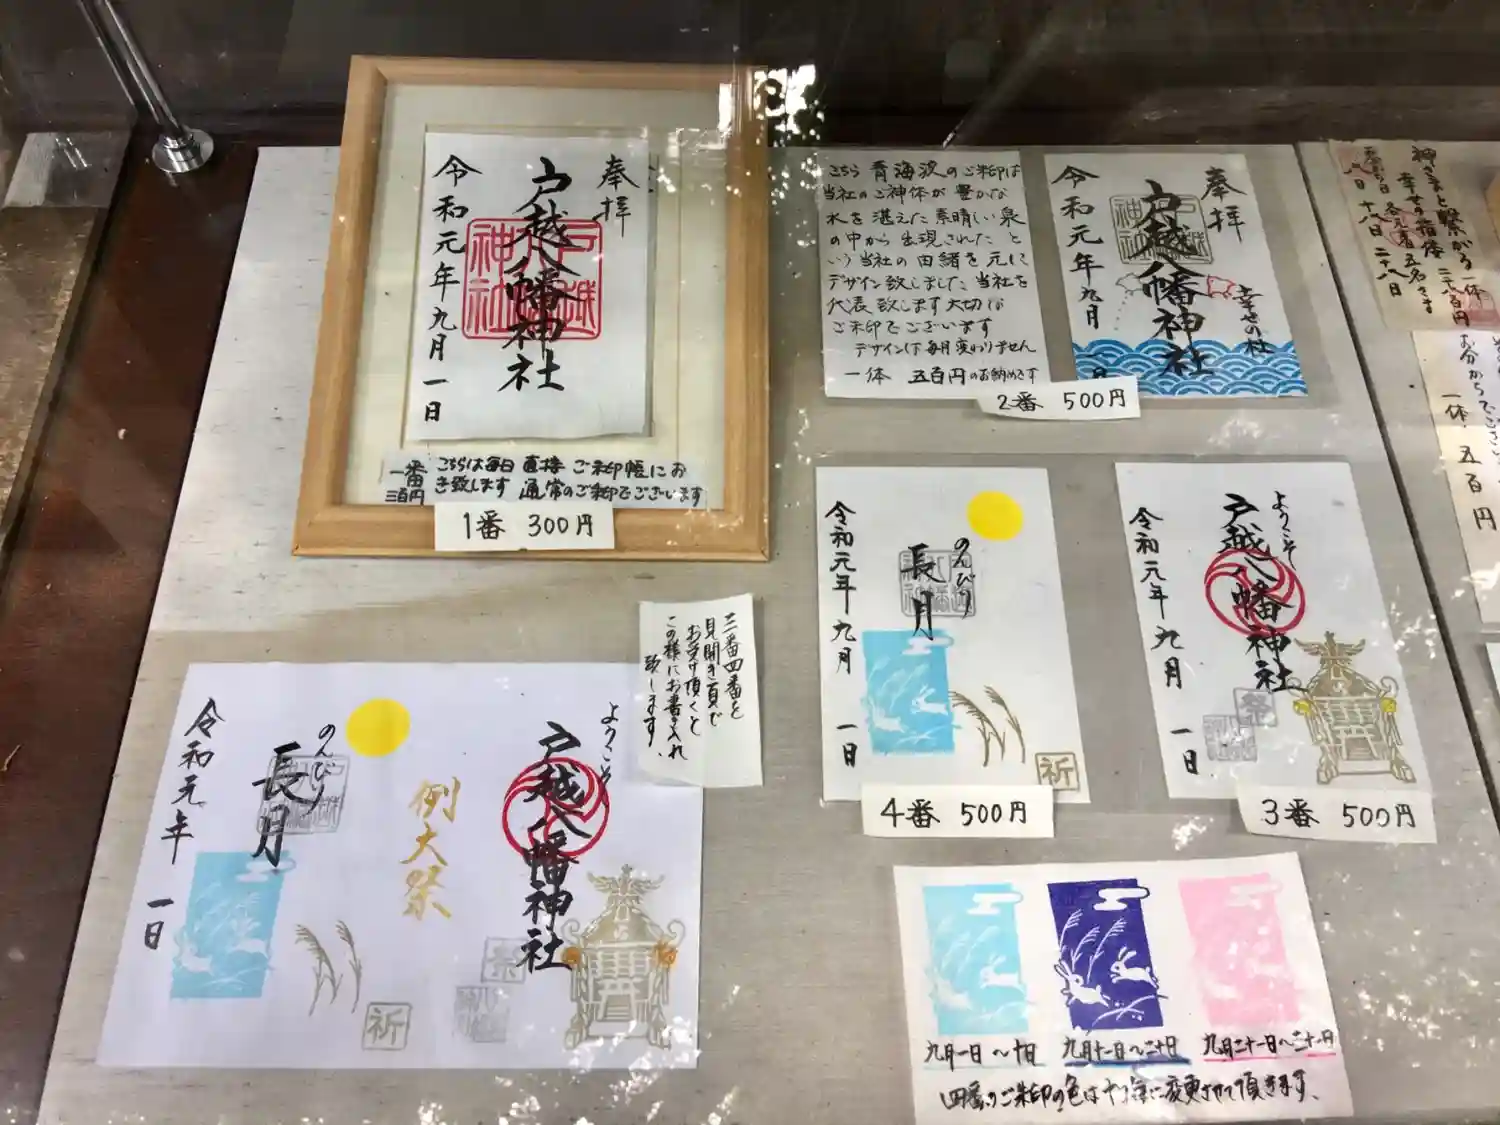 奉拝
戸越八幡神社
令和元年九月一日
一番 こちらは毎日直接ご朱印帳にお
三百円 き致します 通常のご朱印でございます
1番 300円
こちら青海波のご朱印は
当社のご神体が豊かな
水を湛えた素晴しい泉
の中から出現されたと
いう当社の由緒を元に
デザイン致しました当社を
代表致します大切な
ご朱印でございます
デザインは毎月変わりません
一体 五百円のお納めです
奉拝
幸せの社
戸越八幡神社
令和元年九月一日
2番 500円
神さまと繋がる一体
幸せの指標 二千八百円
各先着五名さま
八日 十八日 二十八日
一体 五百円
のんびり
長月
令和元年九月 一日
祈
4番 500円
ようこそ
戸越八幡神社
令和元年九月 一日
祭
3番 500円
三番四番を
見開き頁で
お受け頂くと
この様にお書き入れ
致します。
ようこそ
戸越八幡神社
例大祭
のんびり
長月
令和元年 一日
祭
祈
九月一日〜十日
九月十一日〜二十日
九月二十一日〜三十日
四番のご朱印の色は十日毎に変更させて頂きます。